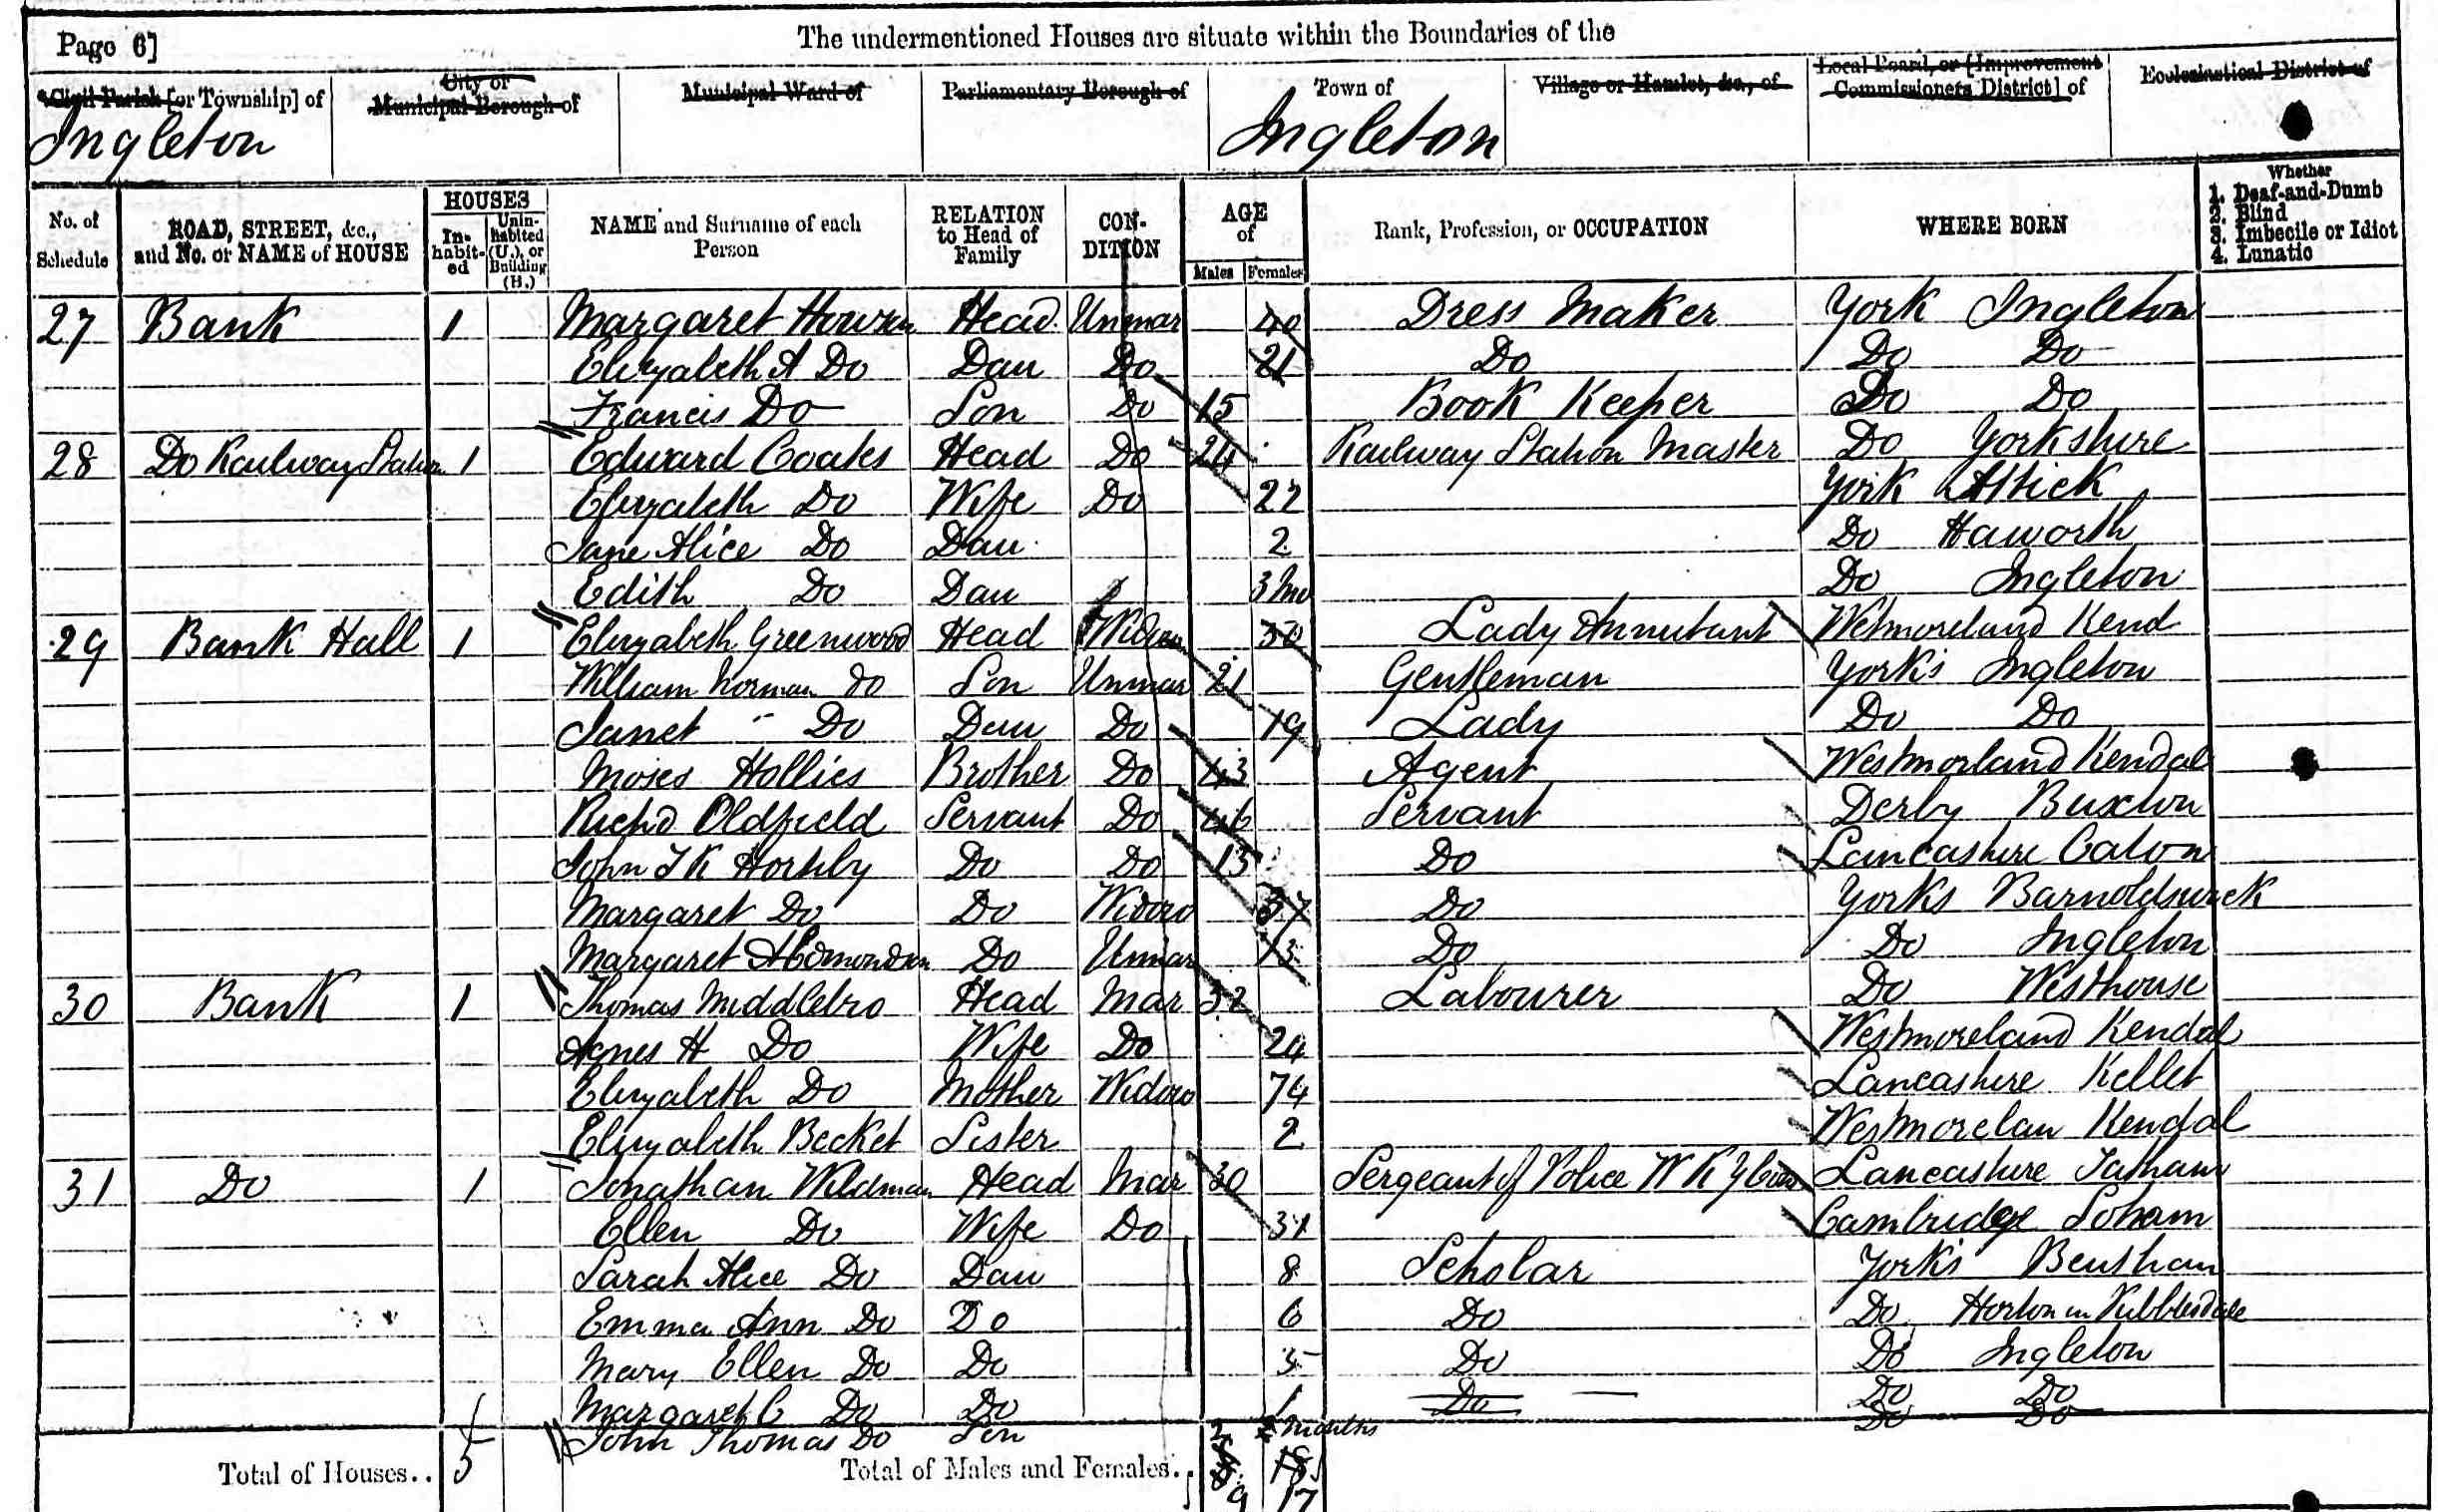 Page 6]
The undermentioned Houses are situate within the Boundaries of the
Civil Parish [or Township] of
City or Municipal Borough of
Municipal Ward of
Parliamentary Borough of
Town of
Village or Hamlet, &c., of
Local Board, or [Improvement Commissioners District] of
Ecclesiastical District of
Ingleton
Ingleton
No. of Schedule
ROAD, STREET, &c., and No. or NAME of HOUSE
HOUSES
In-habit-ed
Unin-habited (U.), or Building (B.)
NAME and Surname of each Person
RELATION to Head of Family
CON-DITION
AGE of
Males
Females
Rank, Profession, or OCCUPATION
WHERE BORN
Whether
1. Deaf-and-Dumb
2. Blind
3. Imbecile or Idiot
4. Lunatic
27 Bank 1 Margaret Head Unmar 40 Dress Maker York Ingleton
Elizabeth A Do Dau Do 21 Do Do Do
Francis Do Son Do 15 Book Keeper Do Do
28 Do Railway Station 1 Edward Coates Head Do 24 Railway Station Master Do Yorkshire
Elizabeth Do Wife Do 22 York
Jane Alice Do Dau 2 Do Haworth
Edith Do Dau 3 Mo Do Ingleton
29 Bank Hall 1 Elizabeth Greenwood Head Widow 50 Lady Annutant Westmoreland Kend
William Norman Do Son Unmar 21 Gentleman Yorks Ingleton
Janet Do Dau Do 19 Lady Do Do
Moses Hollies Brother Do 43 Agent Westmorland Kendal
Richd Oldfield Servant Do 46 Servant Derby Buxton
John Hornby Do Do 15 Do Lancashire Caton
Margaret Do Do Widow 37 Do Yorks Barnoldswick
Margaret A Edmondson Do Unmar 13 Do Do Ingleton
30 Bank 1 Thomas Middlebro Head Mar 32 Labourer Do Westhouse
Agnes H Do Wife Do 24 Westmoreland Kendal
Elizabeth Do Mother Widow 74 Lancashire Kellet
Elizabeth Becket Sister 2 Westmorelan Kendal
31 Do 1 Jonathan Wildman Head Mar 30 Sergeant of Police W R Lancashire Tatham
Ellen Do Wife Do 31 Cambridge Soham
Sarah Alice Do Dau 8 Scholar Yorks Bentham
Emma Ann Do Do 6 Do Do Horton in Ribblesdale
Mary Ellen Do Do 3 Do Do Ingleton
Margaret C Do Do 1 Do Do Do
John Thomas Do Son 2 months Do Do
Total of Houses.. 5 Total of Males and Females.. 9 17